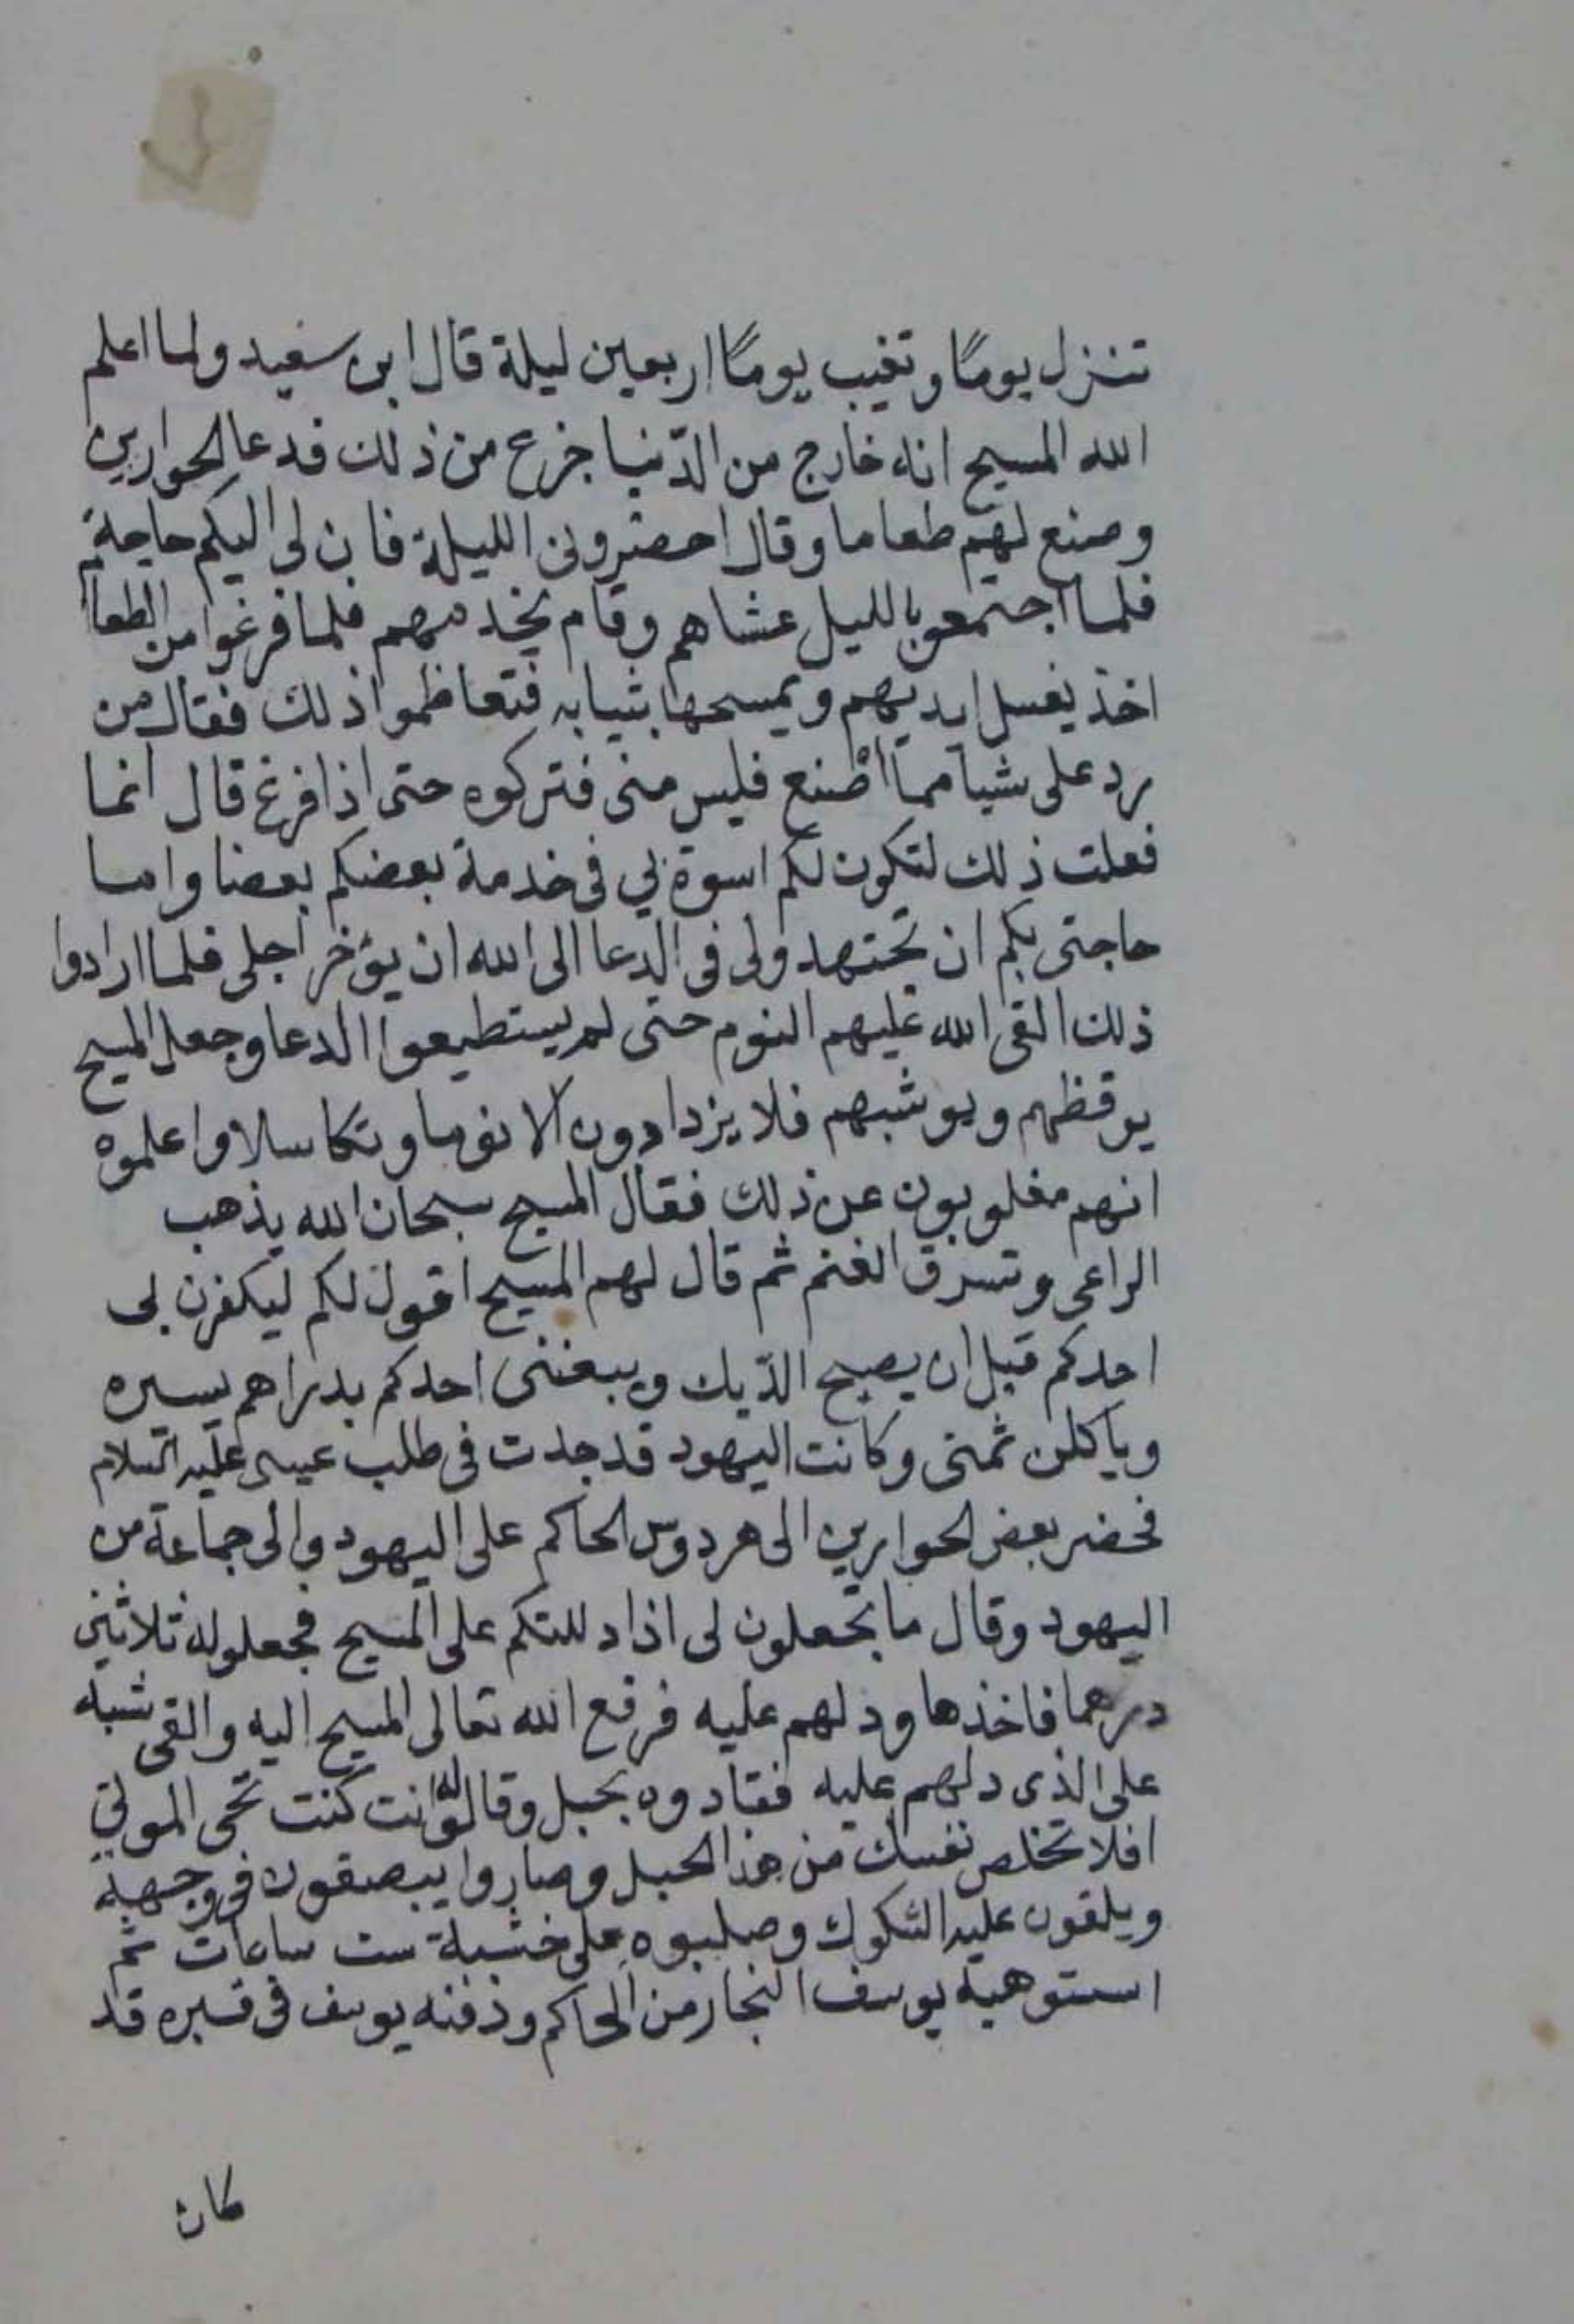 تنزل يومًا وتغيب يومًا اربعين ليلة قال ابن سعيد ولما اعلم
الله المسيح انه خارج من الدّنيا جزع من ذلك فدعا الحوارين
وصنع لهم طعاما وقال احضرونى الليلة فان لى اليكم حاجة
فلما اجتمعوا بالليل عشاهم وقام يخدمهم فلما فرغوا من الطعا
اخذ يغسل ايديهم ويمسحها بثيابه فتعاظموا ذلك فقال من
رد على شيا مما اصنع فليس منى فتركوه حتى اذا فرغ قال انما
فعلت ذلك لتكون لكم اسوة بي فى خدمة بعضكم بعضا واما
حاجتى بكم ان تجتهدو لى فى الدعا الى الله ان يؤخر اجلى فلما ارادوا
ذلك القى الله عليهم النوم حتى لم يستطيعوا الدعا وجعل المسيح
يوقظهم ويوشبهم فلا يزدادون الا نوما وتكاسلا واعلموه
انهم مغلوبون عن ذلك فقال المسيح سبحان الله يذهب
الراعى وتسرق الغنم ثم قال لهم المسيح اقول لكم ليكفرن بى
احدكم قبل ان يصيح الدّيك ويبعننى احدكم بدراهم يسيره
وياكلن ثمنى وكانت اليهود قد جدت فى طلب عيسى عليه السلام
فحضر بعض الحوارين الى هردوس الحاكم على اليهود والى جماعة من
اليهود وقال ما تجعلون لى اذا دللتكم على المسيح فجعلوله ثلاثين
درهما فاخذها ودلهم عليه فرفع الله تعالى المسيح اليه والقى شبه
على الذى دلهم عليه فقادوه بحبل وقالوا له انت كنت تحى الموتى
افلا تخلص نفسك من هذا الحبل وصاروا يبصقون فى وجهه
ويلقون عليه الشكوك وصلبوه على خشبة ست ساعات ثم
استوهبه يوسف النجار من الحاكم ودفنه يوسف فى قبره قد
كان